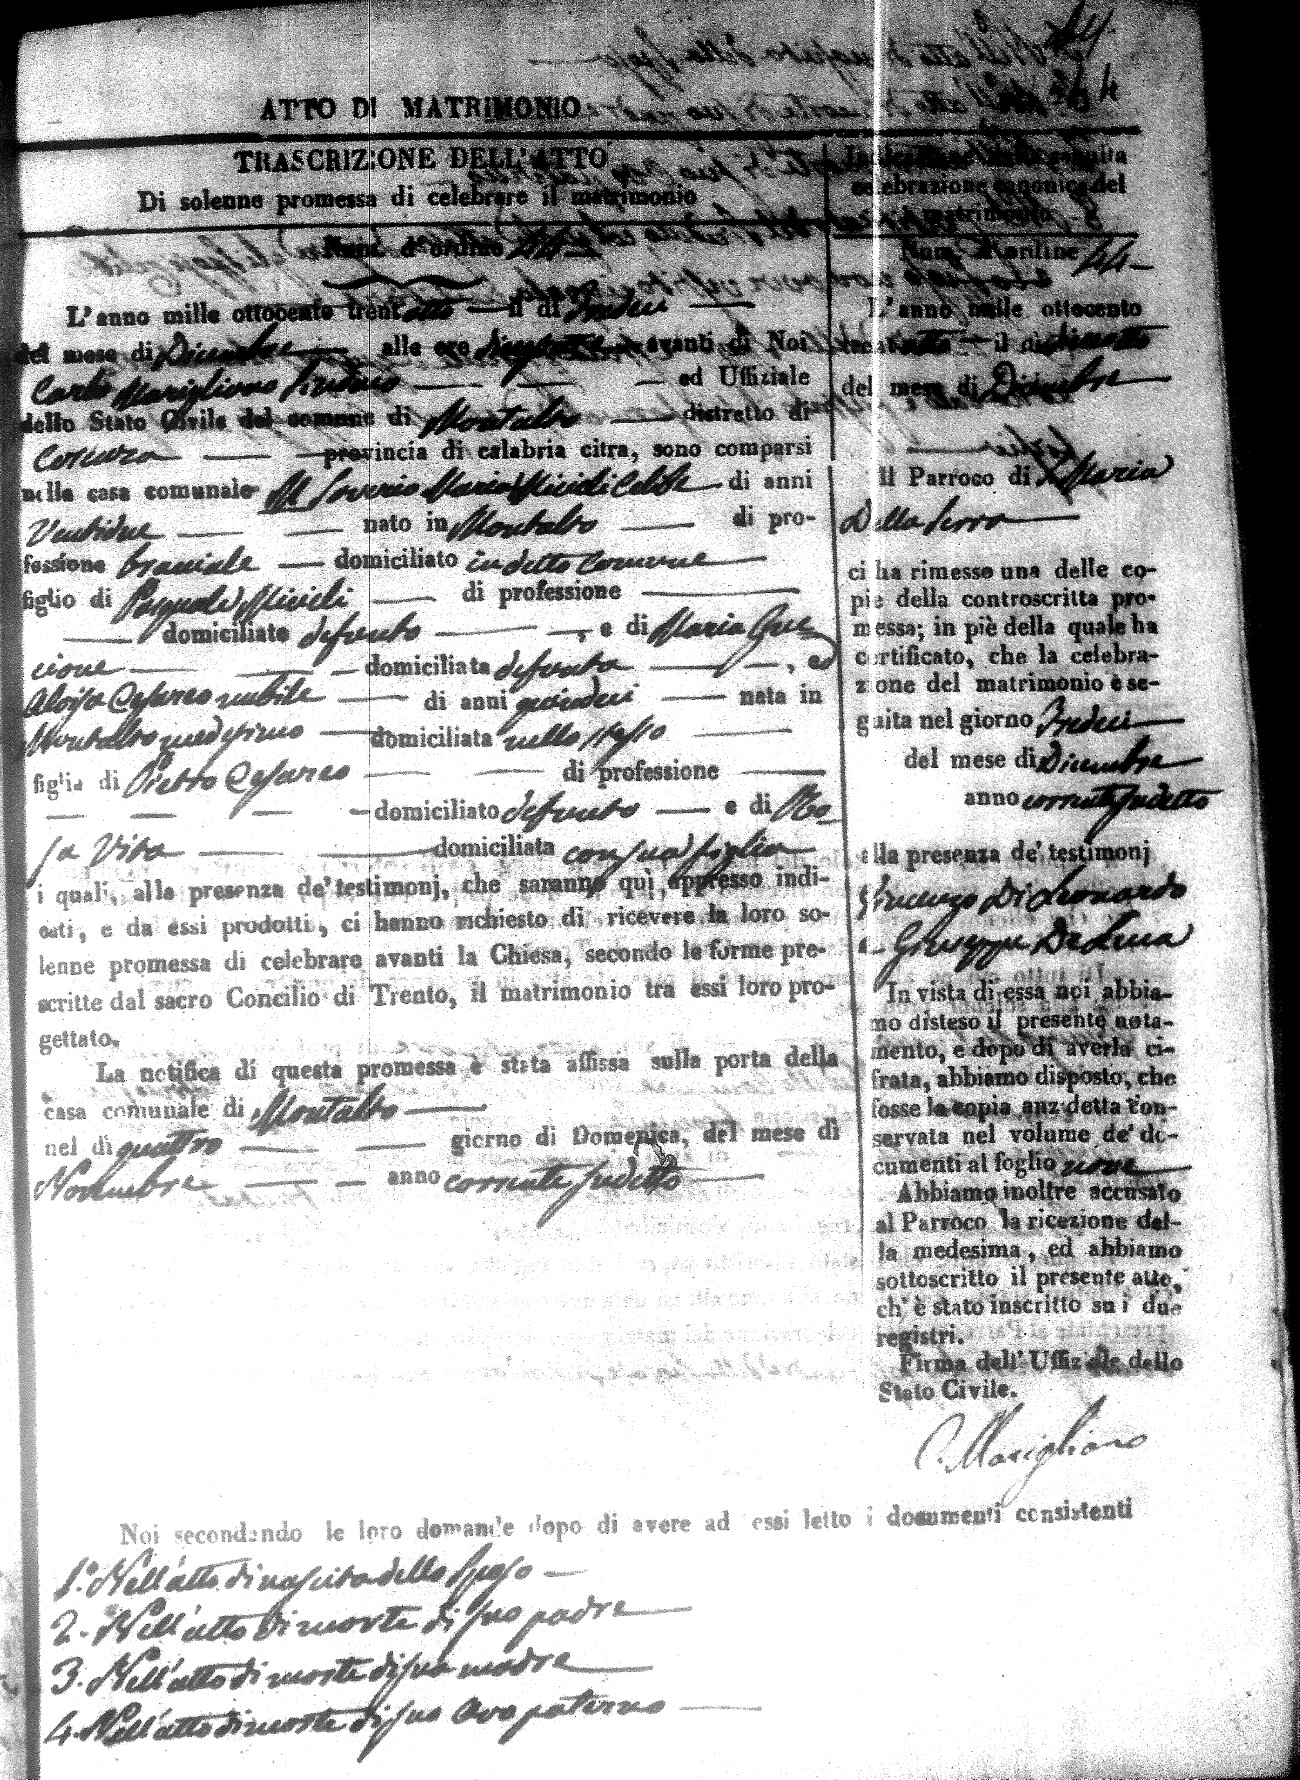 ATTO DI MATRIMONIO
TRASCRIZIONE DELL'ATTO
Di solenne promessa di celebrare il matrimonio
Num. d'ordine 44
L'anno mille ottocento trentotto il di tredici
del mese di Dicembre alle ore avanti di Noi
Carlo Marigliano Sindaco ed Uffiziale
dello Stato Civile del comune di Montalto distretto di
Cosenza provincia di calabria citra, sono comparsi
nella casa comunale Saverio Maria Micieli Celibe di anni
Ventidue nato in Montalto di pro-
fessione braciale domiciliato in detto Comune
figlio di Pasquale Micieli di professione
domiciliato defunto , e di Maria
cione domiciliata defunta , ed
Aloisa Cesareo nubile di anni quindici nata in
Montalto medesimo domiciliata nello stesso
figlia di Pietro Cesareo di professione
domiciliato defunto e di Ro
sa Vita domiciliata con sua figlia
i quali, alla presenza de' testimonj, che saranno quì appresso indi-
cati, e da essi prodotti, ci hanno richiesto di ricevere la loro so-
lenne promessa di celebrare avanti la Chiesa, secondo le forme pre-
scritte dal sacro Concilio di Trento, il matrimonio tra essi loro pro-
gettato.
La notifica di questa promessa è stata affissa sulla porta della
casa comunale di Montalto
nel dì quattro giorno di Domenica, del mese di
Novembre anno corrente sudetto
Indicazione della seguita
celebrazione canonica del
matrimonio
Num. d'ordine 44
L'anno mille ottocento
trentotto il di diciotto
del mese di Dicembre
Il Parroco di S. Maria
Della Serra
ci ha rimesso una delle co-
pie della controscritta pro-
messa; in piè della quale ha
certificato, che la celebra-
zione del matrimonio è se-
guita nel giorno Tredici
del mese di Dicembre
anno corrente sudetto
alla presenza de' testimonj
Vincenzo Di Leonardo
e Giuseppe De Luca
In vista di essa noi abbia-
mo disteso il presente nota-
mento, e dopo di averla ci-
frata, abbiamo disposto, che
fosse la copia anzidetta con-
servata nel volume de' do-
cumenti al foglio nove
Abbiamo inoltre accusato
al Parroco la ricezione del-
la medesima, ed abbiamo
sottoscritto il presente atto,
ch'è stato inscritto su i due
registri.
Firma dell'Uffiziale dello
Stato Civile.
C. Marigliano
Noi secondando le loro domande dopo di avere ad essi letto i documenti consistenti
1.° Nell'atto di nascita dello sposo
2. Nell'atto di morte di suo padre
3. Nell'atto di morte di sua madre
4. Nell'atto di morte di suo Avo paterno